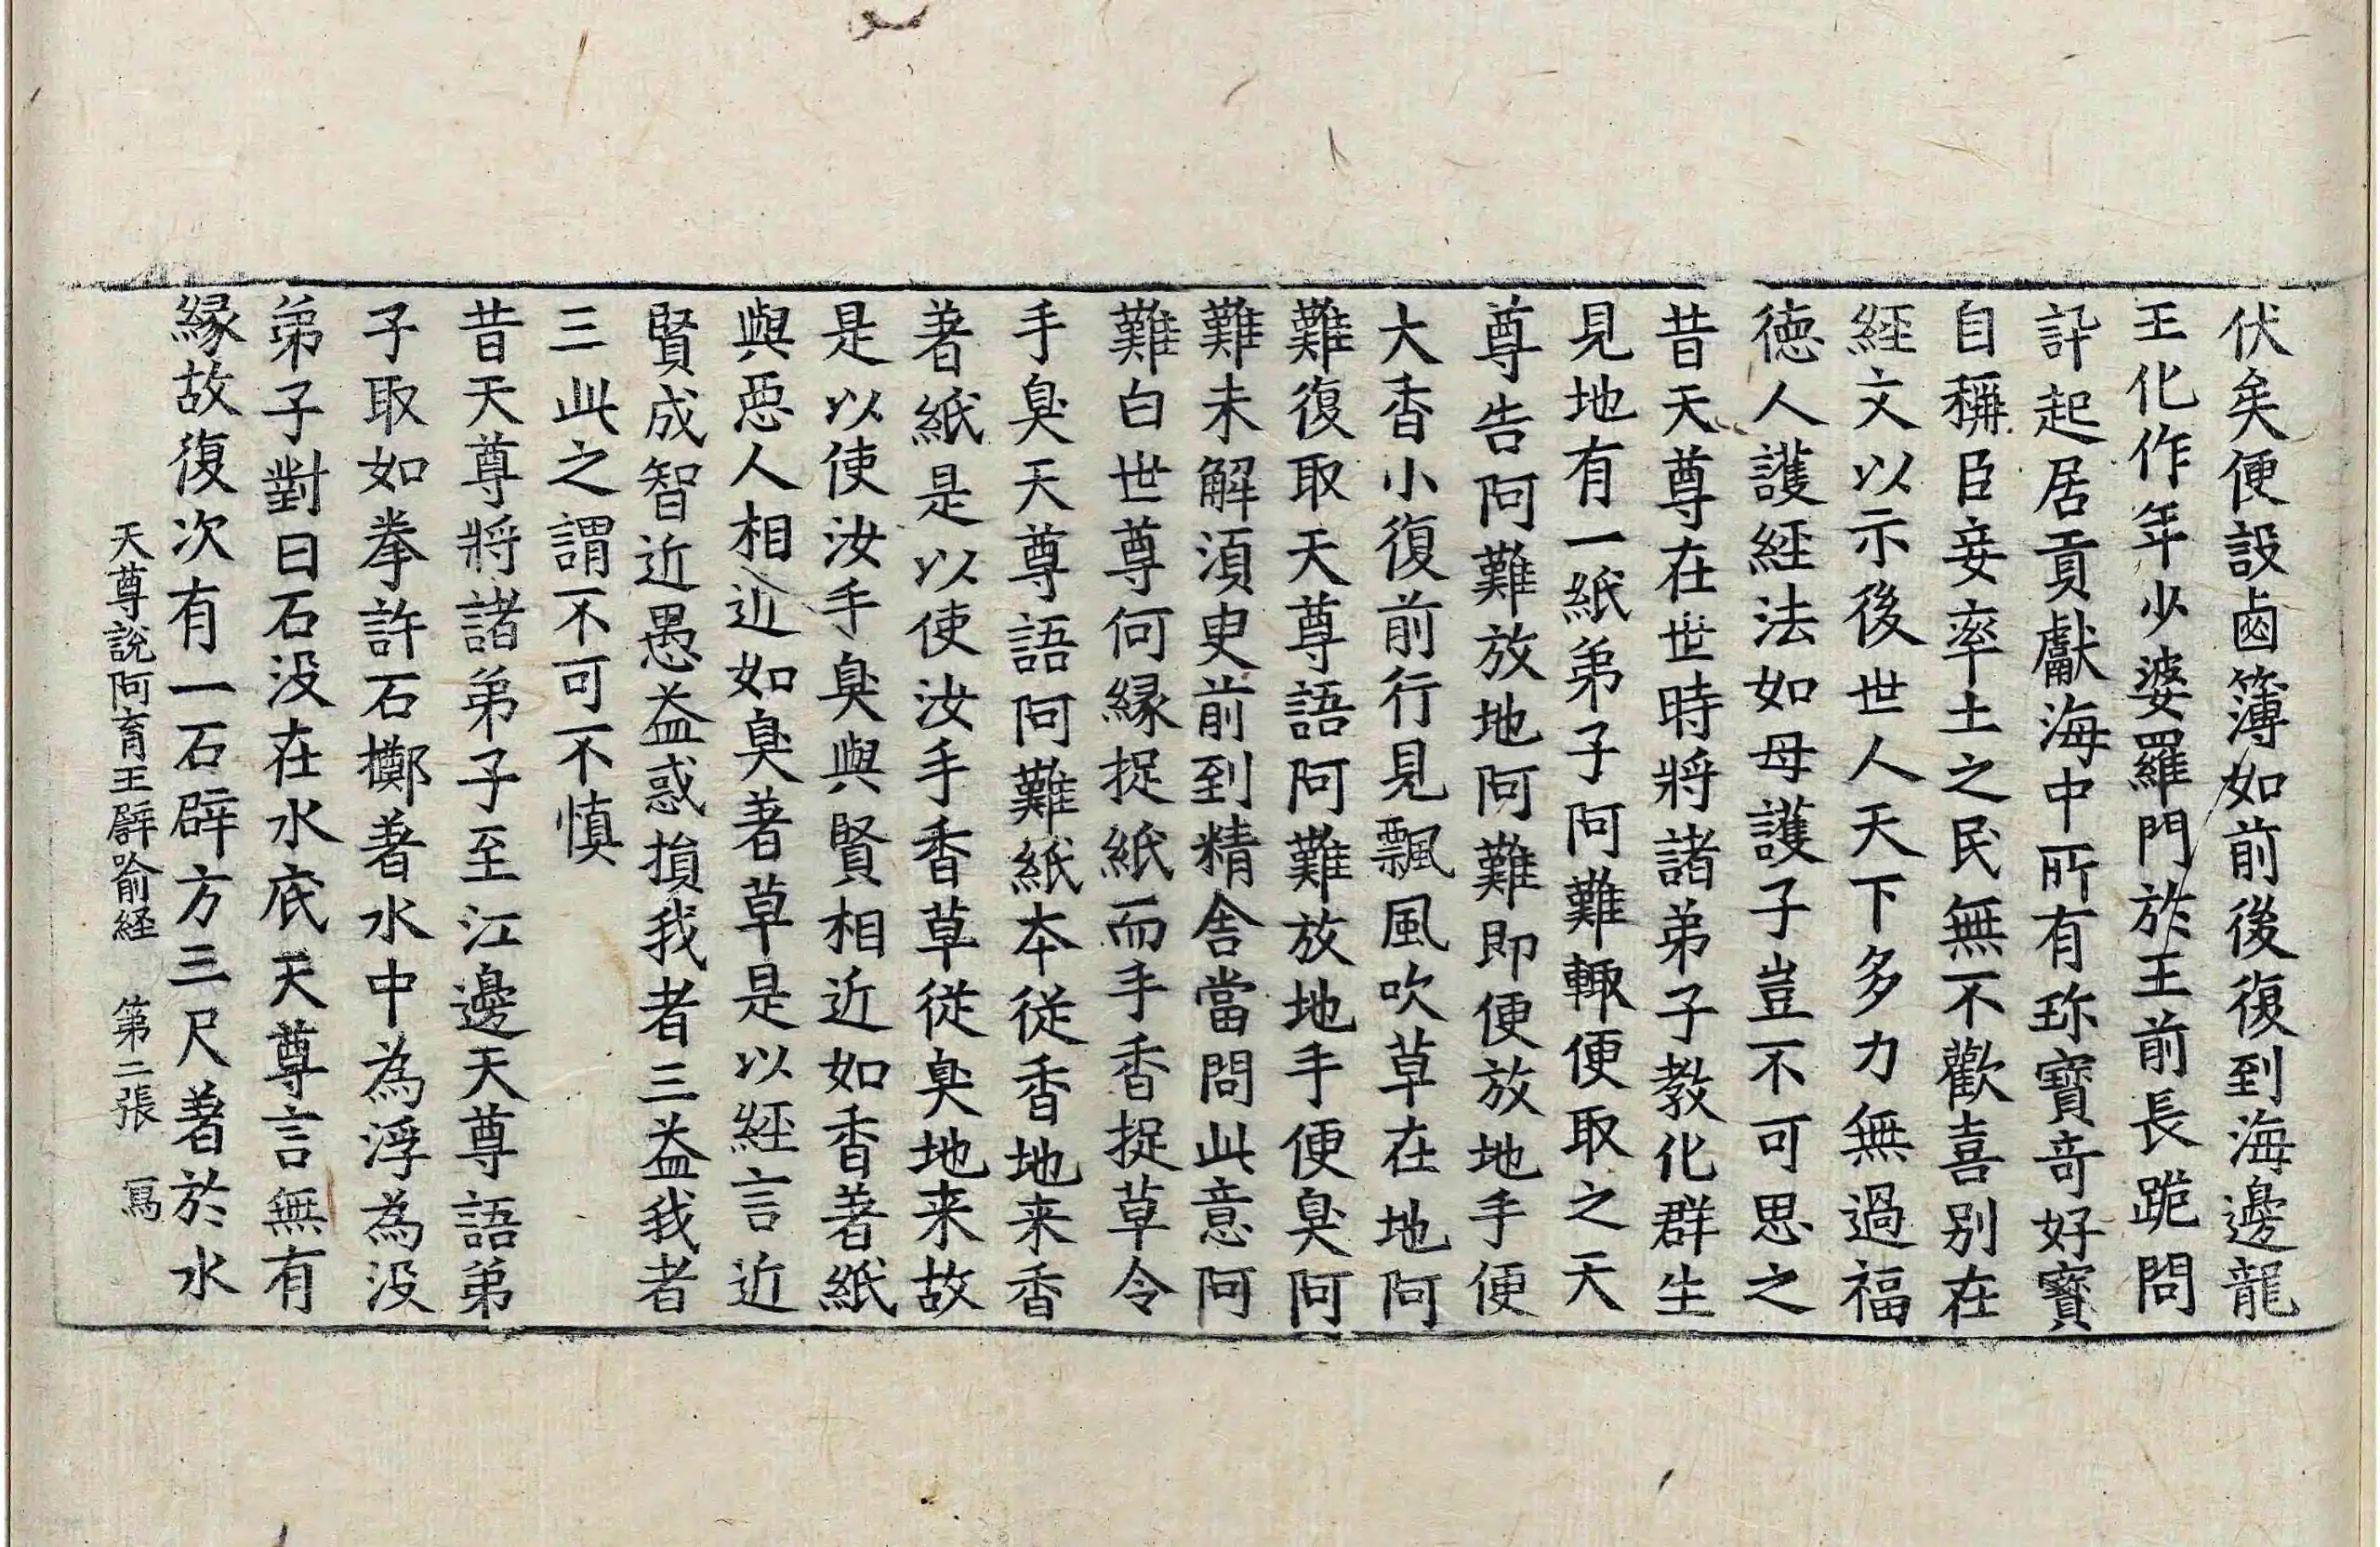 伏矣便設鹵簿如前後復到海邊龍
王化作年少婆羅門於王前長跪問
訊起居貢獻海中所有珎寶奇好寳
自稱臣妾率土之民無不歡喜別在
經文以示後世人天下多力無過福
徳人護經法如母護子豈不可思之
昔天尊在世時將諸弟子教化群生
見地有一紙弟子阿難輙便取之天
尊告阿難放地阿難即便放地手便
大香小復前行見飄風吹草在地阿
難復取天尊語阿難放地手便臭阿
難未解湏臾前到精舎當問此意阿
難白世尊何縁捉紙而手香捉草令
手臭天尊語阿難紙本従香地来香
著紙是以使汝手香草従臭地来故
是以使汝手臭與賢相近如香著紙
與惡人相近如臭著草是以經言近
賢成智近愚益惑損我者三益我者
三此之謂不可不慎
昔天尊將諸弟子至江邊天尊語弟
子取如拳許石擲著水中為浮為沒
弟子對曰石没在水底天尊言無有
縁故復次有一石辟方三尺著於水
天尊說阿育王譬喻経　第二張　冩